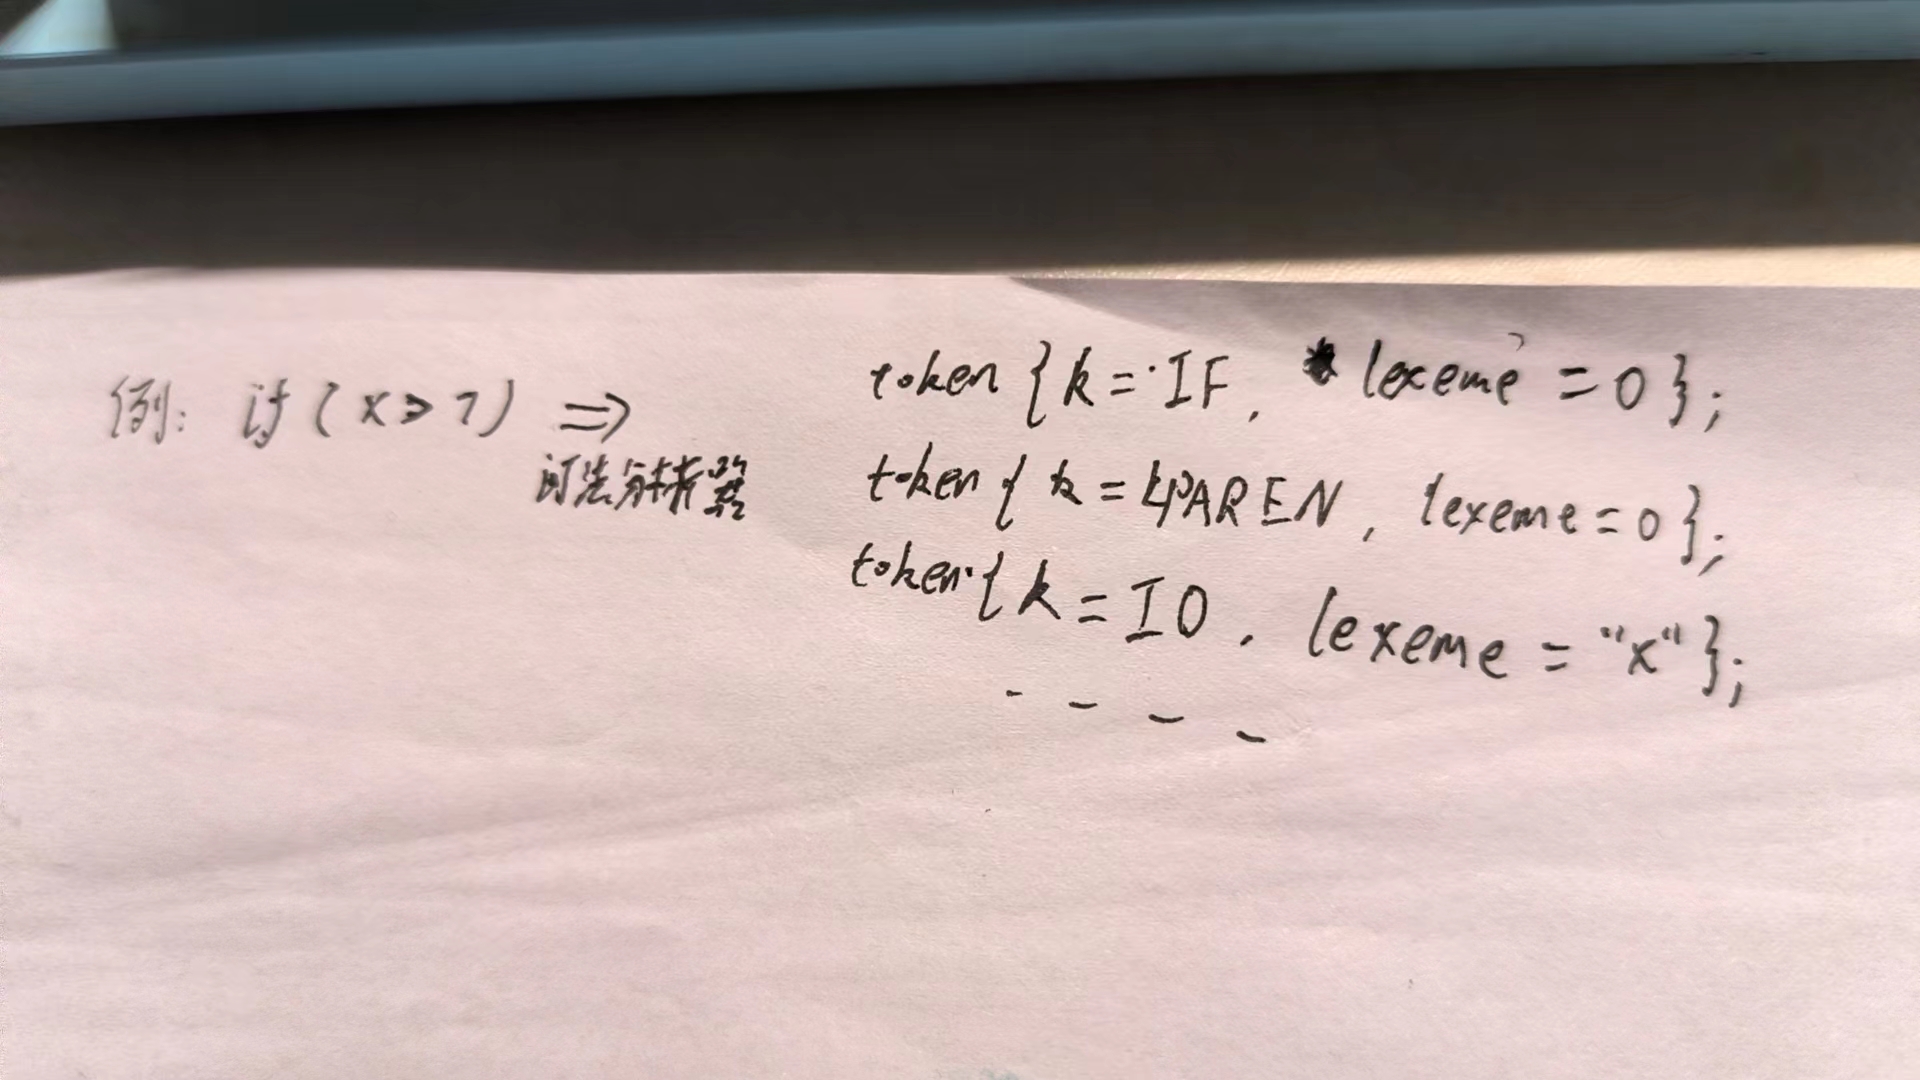 例: if (x > 7) ⇒
词法分析器
token {k = IF, lexeme = 0};
token { k = LPAREN, lexeme = 0};
token {k = ID, lexeme = "x"};
- - - -